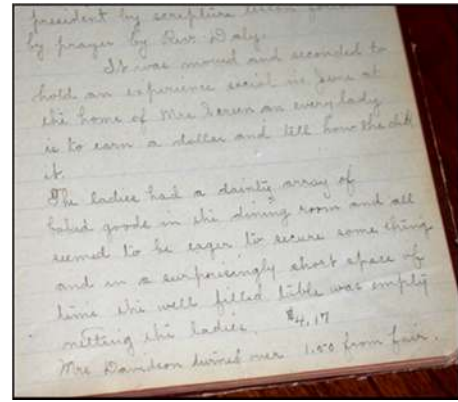 president by scripture lesson
by prayer by Rev. Daly.
It was moved and seconded to
hold an experience social in June at
the home of Mrs every lady
is to earn a dollar and tell how she did
it.
The ladies had a dainty array of
baked goods in the dining room and all
seemed to be eager to secure some thing
and in a surprisingly short space of
time the well filled table was empty
netting the ladies. $4.17
Mrs Davidson turned over 1.50 from fair.